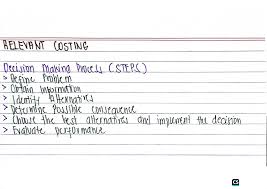 RELEVANT COSTING
Decision Making Process (STEPS)
> Define Problem
> Obtain Information
> Identify Alternatives
> Determine Possible consequence
> Choose the best alternatives and implement the decision
> Evaluate performance